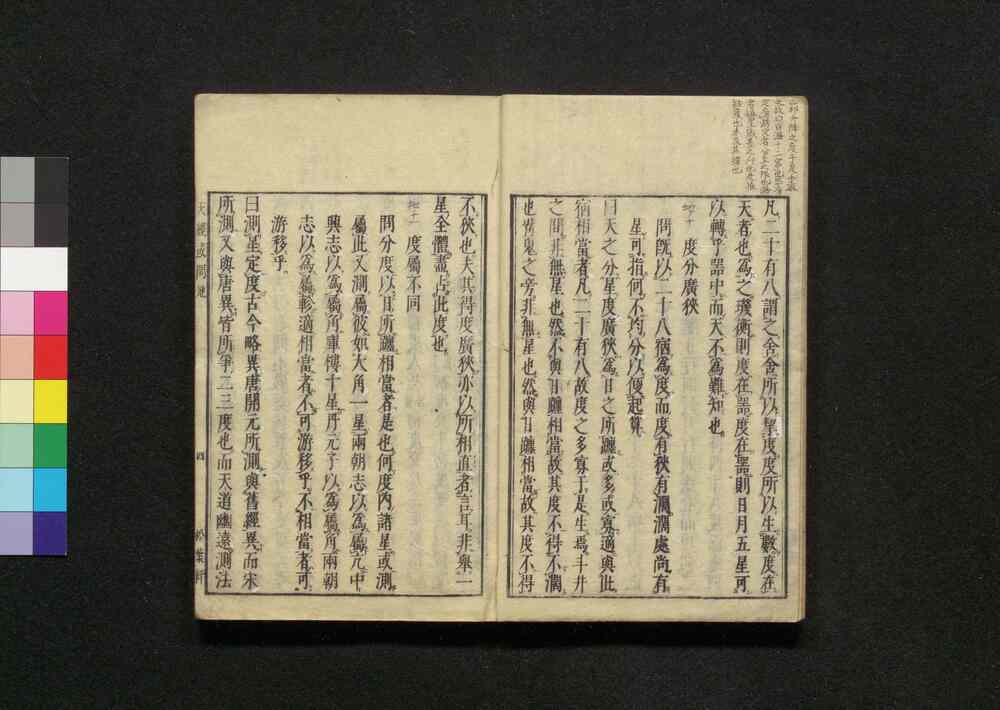 凡二十有八謂之舍舍所以挈度度所以生數度在
天者也爲之璣衡則度在器度在器則日月五星可
以轉乎器中而天不爲難知也
度分廣狹
問旣以二十八宿爲度而度有狹有濶濶處尚有
星可指何不均分以便起算
曰天之分星度廣狹爲日之所躔或多或寡適與此
宿相當者凡二十有八故度之多寡于是生焉斗井
之間非無星也然不與日躔相當故其度不得不濶
也觜鬼之旁非無星也然與日躔相當故其度不得
不狹也夫其得度廣狹亦以所相直者言耳非舉一
星全體盡占此度也
度屬不同
問分度以日所躔相當者是也何度內諸星或測
屬此又測屬彼如大角一星兩朝志以爲屬亢中
興志以爲屬角庫樓十星丹元子以爲屬角兩朝
志以爲屬軫適相當者不可游移乎不相當者可
游移乎
曰測星定度古今略異唐開元所測與舊經異而宋
所測又與唐異皆所爭二三度也而天道幽遠測法
天經或問 地
四
松葉軒